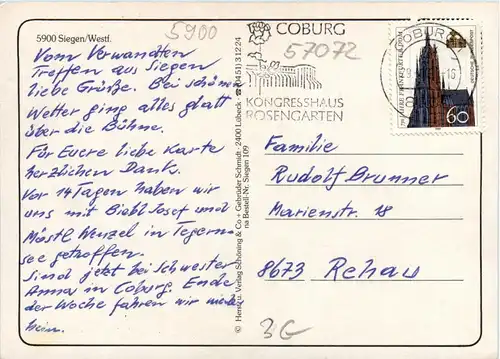 5900 Siegen/Westf.
5900
Vom Verwandten
Treffen aus Siegen
liebe Grüße. Bei schönem
Wetter ging alles glatt
über die Bühne.
Für Euere liebe Karte
herzlichen Dank.
Vor 14 Tagen haben wir
uns mit Biehl Josef und
Möstl Wenzel in Tegern-
see getroffen.
Sind jetzt bei Schwester
Anna in Coburg. Ende
der Woche fahren wir wieder
heim.
© Herst. u. Verlag Schöning & Co + Gebrüder Schmidt · 2400 Lübeck · ☎ (0451) 3 12 24
na Bestell-Nr. Siegen 169
COBURG
57072
KONGRESSHAUS
ROSENGARTEN
COBURG
60
Familie
Rudolf Brunner
Marienstr. 18
8673 Rehau
3G